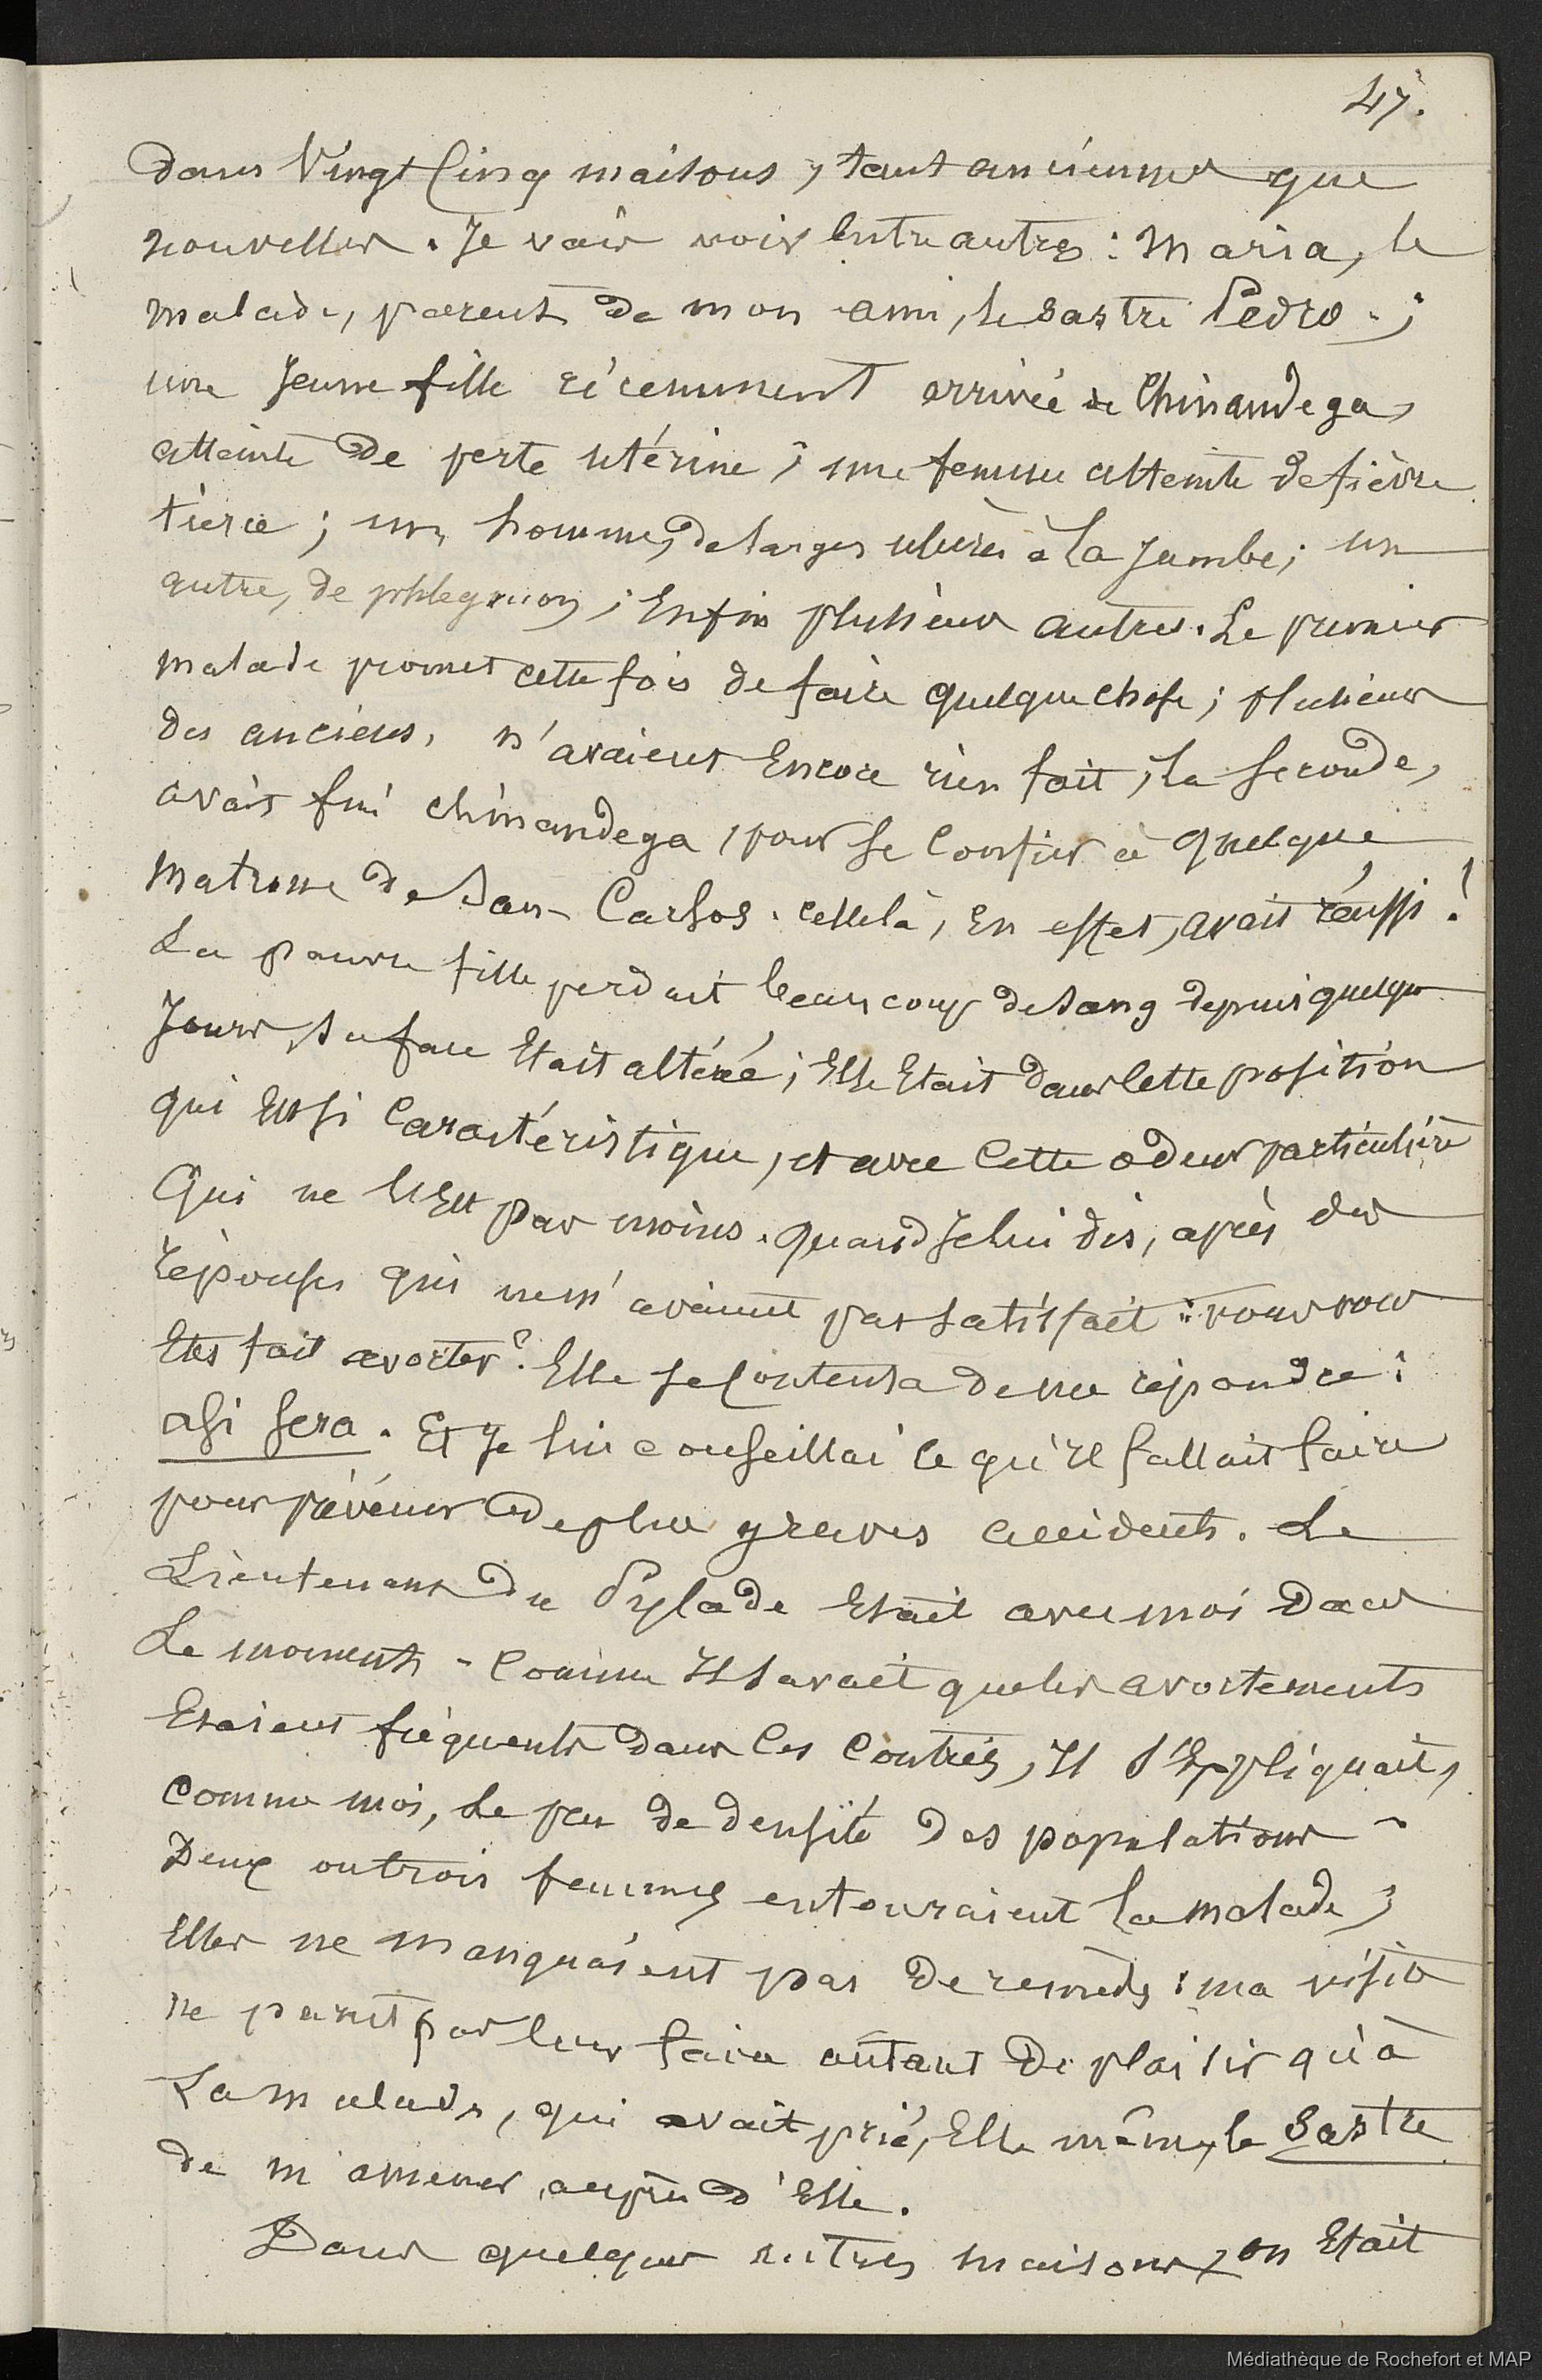 47.
dans Vingt Cinq maisons, tant anciennes que
nouvelles. Je vais voir Entre autres : Maria, le
malade, parent de mon ami, le sastre Pedro ;
une Jeune fille récemment arrivée de Chinandega,
atteinte de perte utérine ; une femme atteinte de fièvre
tierce ; un homme, de larges ulcères à la Jambe ; un
autre, de phlegmon ; Enfin plusieurs autres. Le premier
malade promet cette fois de faire quelque chose ; plusieurs
des anciens, n'avaient Encore rien fait ; la seconde,
avait fui chinandega, pour se Confier à quelque
matrone de San-Carlos. Celle là, En effet, avait réussi !
La pauvre fille perdait beaucoup de sang depuis quelques
Jours, sa face Etait altérée ; Elle Etait dans Cette position
qui Est si Caractéristique, et avec Cette odeur particulière
Qui ne l'Est pas moins. quand Je lui dis, après des
réponses qui ne m'avaient pas satisfait : vous vous
Etes fait avorter ? Elle se Contenta de me répondre :
asi sera. Et Je lui conseillai Ce qu'Il fallait faire
pour prévenir de plus graves accidents. Le
Lieutenant du Pylade Etait avec moi dans
Le moment - Comme Il savait que les avortements
Etaient fréquents dans Ces Contrées, Il s'Expliquait,
Comme moi, le peu de densité des populations -
Deux ou trois femmes entouraient la malade ;
Elles ne manquaient pas de remèdes : ma visite
ne parut pas leur faire autant de plaisir qu'à
La malade, qui avait prié, Elle même, le Sastre
de m'amener auprès d'Elle.
Dans quelques autres maisons, on Etait
Médiathèque de Rochefort et MAP